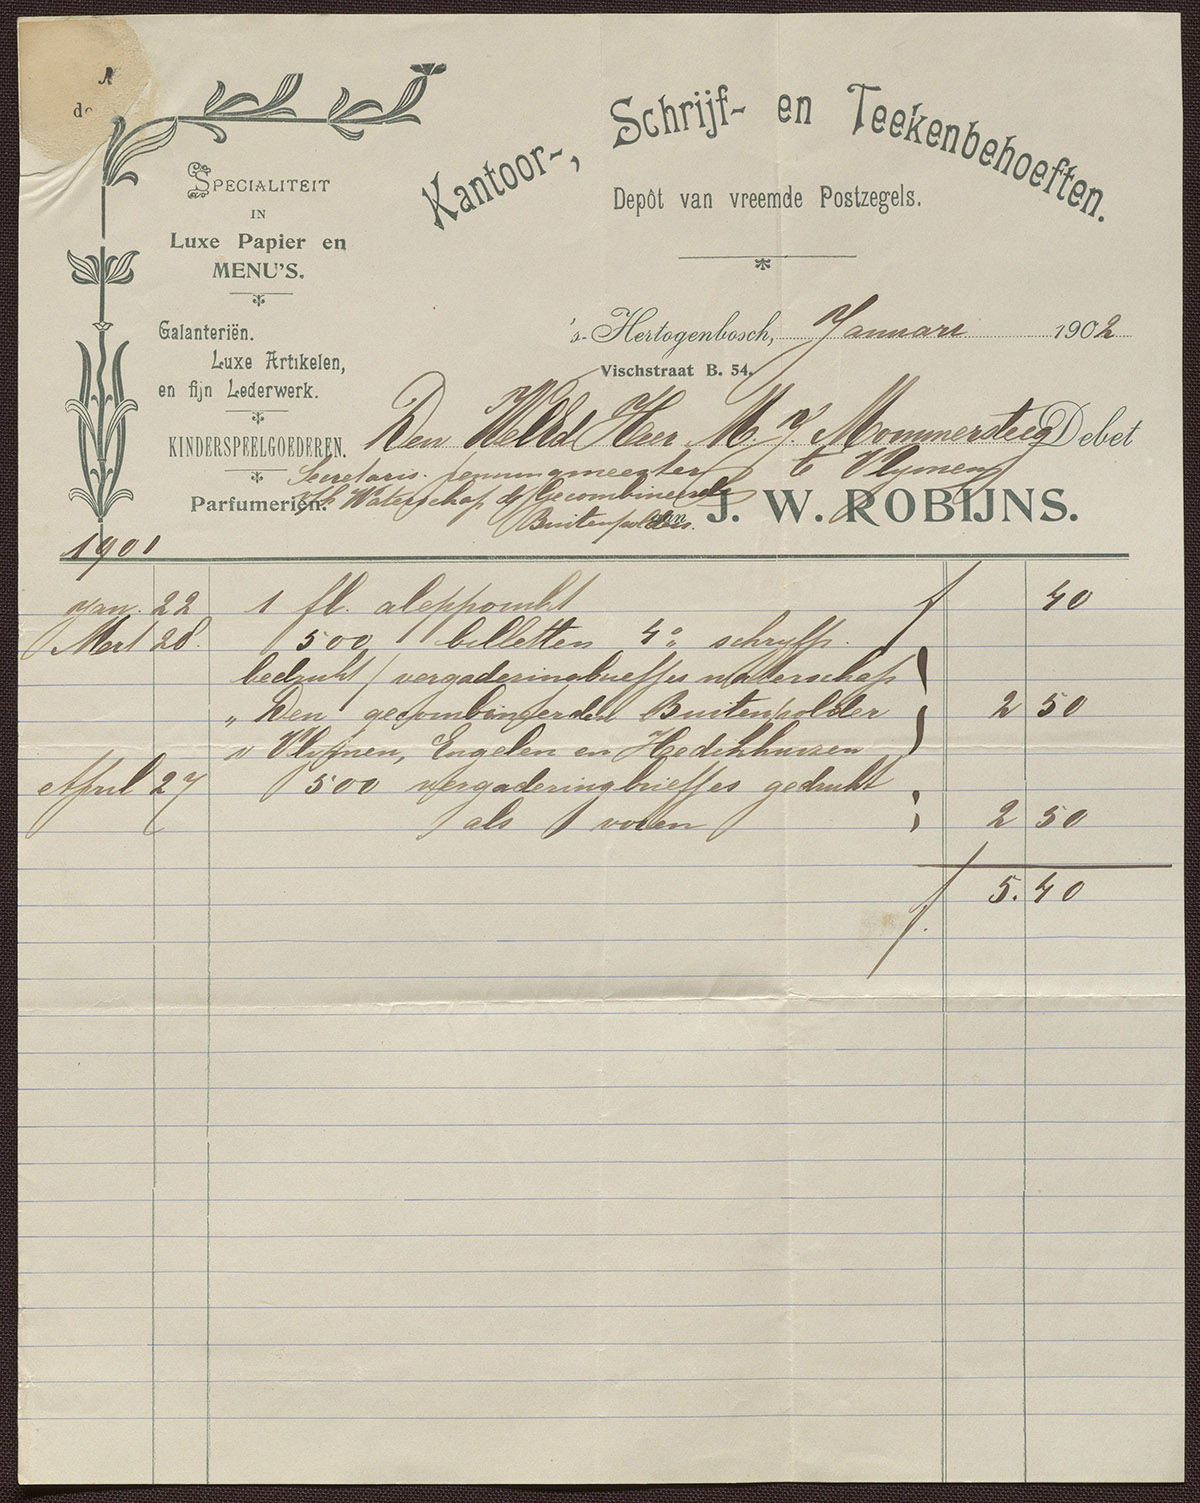 Kantoor-, Schrijf- en Teekenbehoeften.
Depôt van vreemde Postzegels.
SPECIALITEIT
IN
Luxe Papier en
MENU'S.
Galanteriën.
Luxe Artikelen,
en fijn Lederwerk.
KINDERSPEELGOEDEREN.
Parfumeriën.
's-Hertogenbosch, Januari 1902
Vischstraat B. 54.
Den WelEd Heer M. J. Mommersteeg Debet
Secretaris penningmeester t Vlymen
v/h Waterschap de Gecombineerde
Buitenpolders.
aan J. W. ROBIJNS.
1901
Jan. 22 1 fl. aleppoinkt f 40
Mert 28. 500 billetten 4o schryfp.
bedrukt / vergaderingbriefjes waterschap
„ Den gecombineerden Buitenpolder 2 50
v Vlijmen, Engelen en Hedikhuizen
April 27 500 vergaderingbriefjes gedrukt
als voren 2 50
f 5.40